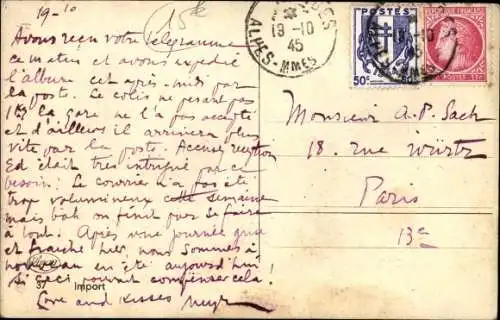 19-10
15k
Avons reçu votre télégramme
ce matin et avons expedié
l'album cet après-midi par
la poste. Le colis ne pesant pas
la gare ne l'a pas accepté
et d'ailleurs il arrivera plus
vite par la poste. Accusez
Ed était très intrigué par ce
besoin! Le courrier n'a pas été
trop volumineux cette semaine
mais bah on finit par se faire
à tout. Après une journée grise
et fraiche hier, nous sommes à
nouveau en été aujourd'hui!
Si ceci pouvait compenser cela.
Love and Kisses
37 Import
19-10
45
ALPES-MMES
POSTES
50c
Monsieur A-P. Sach
18. rue Wurtz
Paris
13e